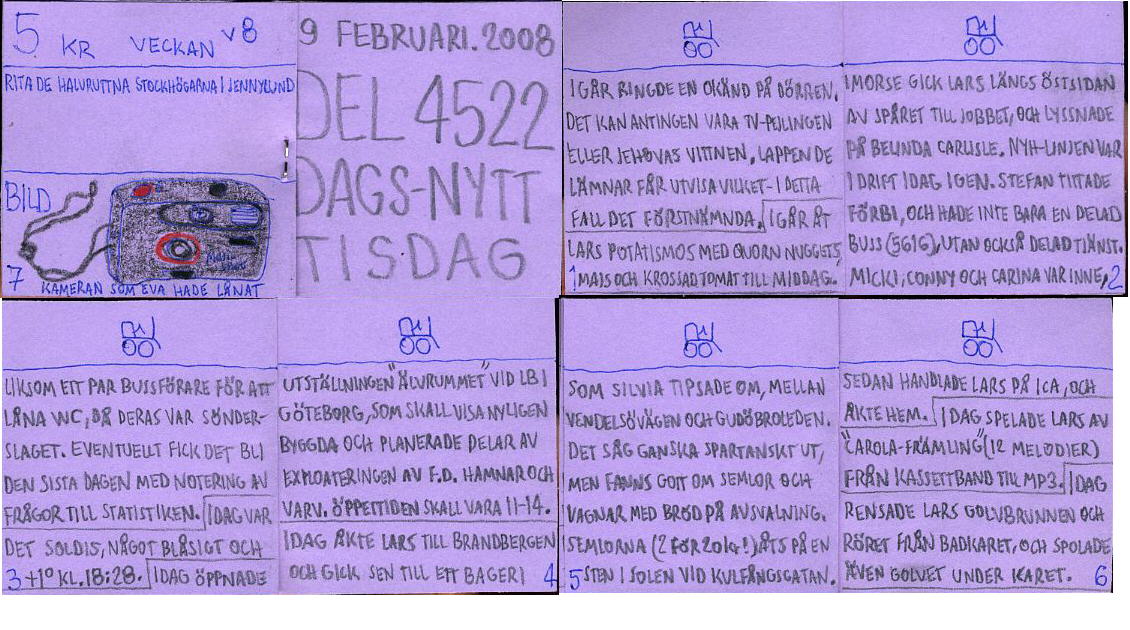 5 KR VECKAN V8
RITA DE HALVRUTTNA STOCKHÖGARNA I JENNYLUND
BILD
7 KAMERAN SOM EVA HADE LÅNAT
9 FEBRUARI. 2008
DEL 4522
DAGS-NYTT
TISDAG
IGÅR RINGDE EN OKÄND PÅ DÖRREN.
DET KAN ANTINGEN VARA TV-PEJLINGEN
ELLER JEHOVAS VITTNEN, LAPPEN DE
LÄMNAR FÅR UTVISA VILKET - I DETTA
FALL DET FÖRSTNÄMNDA. IGÅR ÅT
LARS POTATISMOS MED QUORN NUGGETS,
1 MAJS OCH KROSSAD TOMAT TILL MIDDAG.
IMORSE GICK LARS LÄNGS ÖSTSIDAN
AV SPÅRET TILL JOBBET, OCH LYSSNADE
PÅ BELINDA CARLISLE. NYH-LINJEN VAR
I DRIFT IDAG IGEN. STEFAN TITTADE
FÖRBI, OCH HADE INTE BARA EN DELAD
BUSS (5616), UTAN OCKSÅ DELAD TJÄNST.
MICKI, CONNY OCH CARINA VAR INNE, 2
LIKSOM ETT PAR BUSSFÖRARE FÖR ATT
LÅNA WC, DÅ DERAS VAR SÖNDER-
SLAGET. EVENTUELLT FICK DET BLI
DEN SISTA DAGEN MED NOTERING AV
FRÅGOR TILL STATISTIKEN. IDAG VAR
DET SOLDIS, NÅGOT BLÅSIGT OCH
3 +1° KL.18:28. IDAG ÖPPNADE
UTSTÄLLNINGEN "ÄLVRUMMET" VID LB I
GÖTEBORG, SOM SKALL VISA NYLIGEN
BYGGDA OCH PLANERADE DELAR AV
EXPLOATERINGEN AV F.D. HAMNAR OCH
VARV. ÖPPETTIDEN SKALL VARA 11-14.
IDAG ÅKTE LARS TILL BRANDBERGEN
OCH GICK SEN TILL ETT BAGERI 4
SOM SILVIA TIPSADE OM, MELLAN
VENDELSÖVÄGEN OCH GUDÖBROLEDEN.
DET SÅG GANSKA SPARTANSKT UT,
MEN FANNS GOTT OM SEMLOR OCH
VAGNAR MED BRÖD PÅ AVSVALNING.
SEMLORNA (2 FÖR 20 kr!) ÅTS PÅ EN
5 STEN I SOLEN VID KULFÅNGSGATAN.
SEDAN HANDLADE LARS PÅ ICA, OCH
ÅKTE HEM. IDAG SPELADE LARS AV
"CAROLA-FRÄMLING" (12 MELODIER)
FRÅN KASSETTBAND TILL MP3. IDAG
RENSADE LARS GOLVBRUNNEN OCH
RÖRET FRÅN BADKARET, OCH SPOLADE
ÄVEN GOLVET UNDER KARET. 6